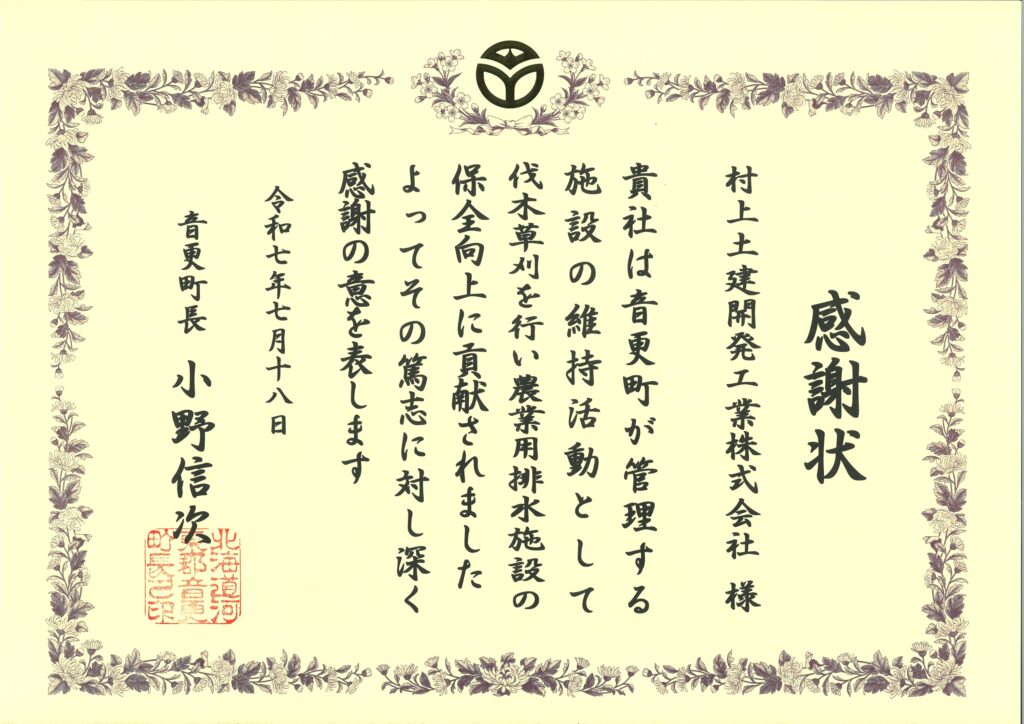 感謝状
村上土建開発工業株式会社 様
貴社は音更町が管理する
施設の維持活動として
伐木草刈を行い農業用排水施設の
保全向上に貢献されました
よってその篤志に対し深く
感謝の意を表します
令和七年七月十八日
音更町長 小野信次
北海道河
東郡音更
町長之印